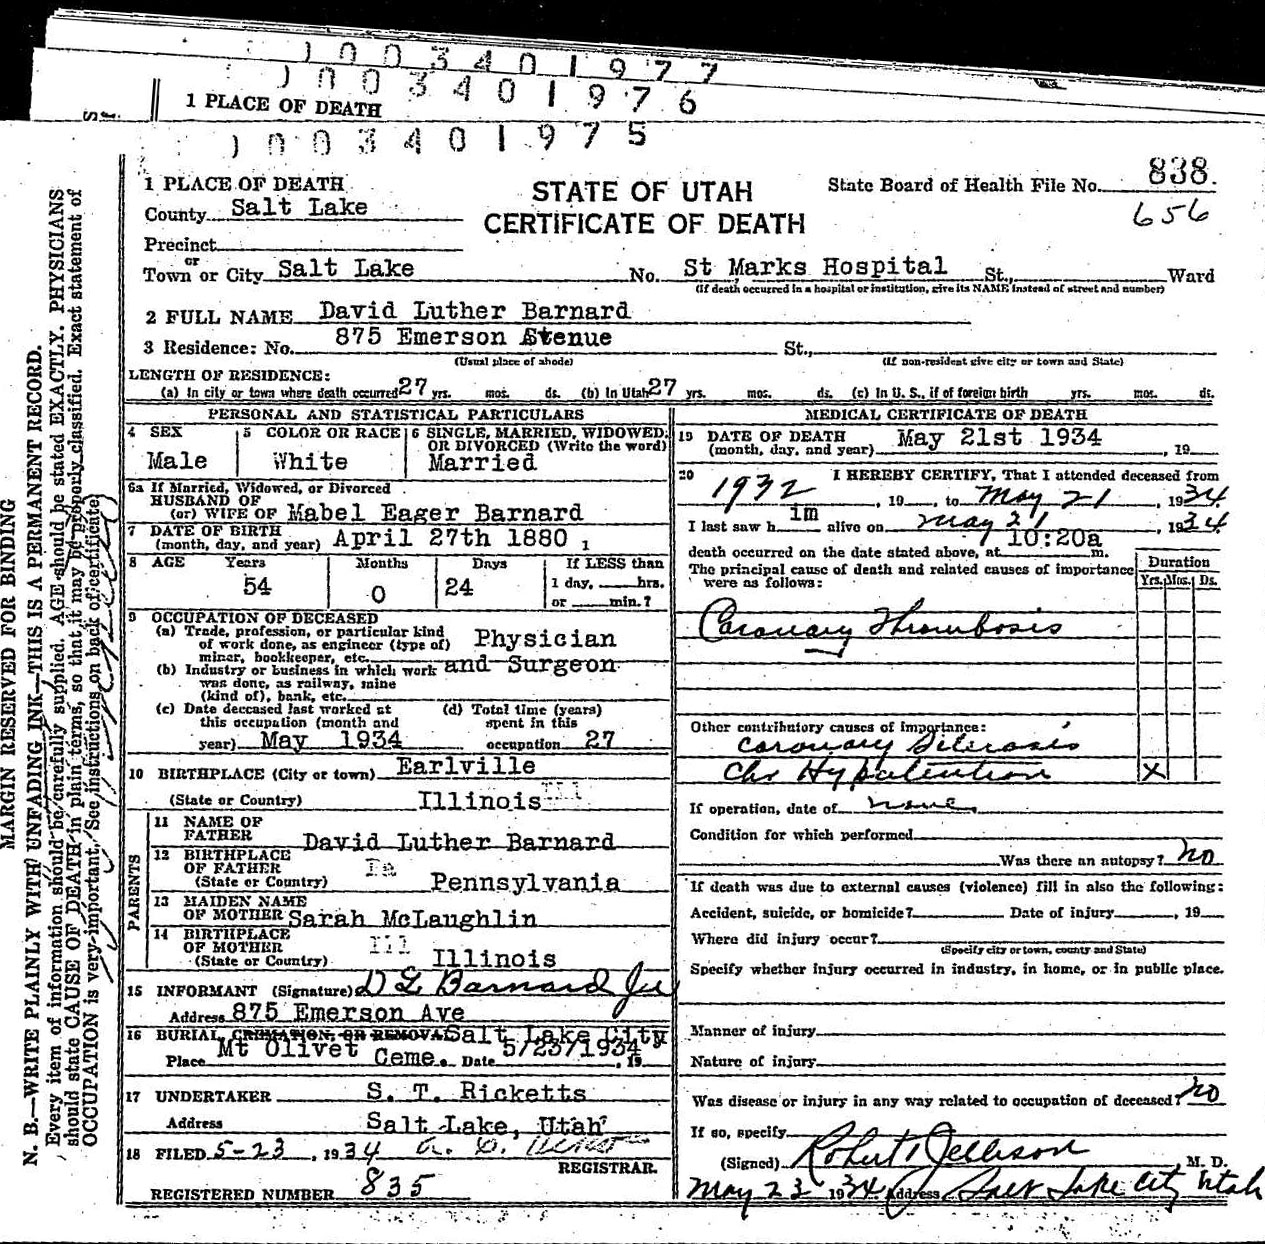 0 0 3 4 0 1 9 7 7
0 0 3 4 0 1 9 7 6
1 PLACE OF DEATH
0 0 3 4 0 1 9 7 5
1 PLACE OF DEATH
STATE OF UTAH
CERTIFICATE OF DEATH
State Board of Health File No. 838
656
County Salt Lake
Precinct
or
Town or City Salt Lake No. St Marks Hospital St., Ward
(If death occurred in a hospital or institution, give its NAME instead of street and number)
2 FULL NAME David Luther Barnard
3 Residence: No. 875 Emerson St., 
(Usual place of abode) (If non-resident give city or town and State)
LENGTH OF RESIDENCE:
(a) In city or town where death occurred 27 yrs. mos. ds. (b) In Utah 27 yrs. mos. ds. (c) In U. S., if of foreign birth yrs. mos. ds.
PERSONAL AND STATISTICAL PARTICULARS
4 SEX
Male
5 COLOR OR RACE
White
6 SINGLE, MARRIED, WIDOWED,
OR DIVORCED (Write the word)
Married
6a If Married, Widowed, or Divorced
HUSBAND OF
(or) WIFE OF Mabel Eager Barnard
7 DATE OF BIRTH
(month, day, and year) April 27th 1880 1
8 AGE Years Months Days If LESS than
54 0 24 1 day, hrs.
or min.?
9 OCCUPATION OF DECEASED
(a) Trade, profession, or particular kind
of work done, as engineer (type of)
miner, bookkeeper, etc. Physician
(b) Industry or business in which work and Surgeon
was done, as railway, mine
(kind of), bank, etc.
(c) Date deceased last worked at
this occupation (month and
year) May 1934
(d) Total time (years)
spent in this
occupation 27
10 BIRTHPLACE (City or town) Earlville
(State or Country) Illinois Ill
PARENTS
11 NAME OF
FATHER David Luther Barnard
12 BIRTHPLACE
OF FATHER Pa
(State or Country) Pennsylvania
13 MAIDEN NAME
OF MOTHER Sarah McLaughlin
14 BIRTHPLACE
OF MOTHER Ill
(State or Country) Illinois
15 INFORMANT (Signature) D L Barnard Jr
Address 875 Emerson Ave
16 BURIAL, CREMATION, OR REMOVAL Salt Lake City
Place Mt Olivet Ceme. Date 5/23/1934, 19
17 UNDERTAKER S. T. Ricketts
Address Salt Lake, Utah
18 FILED 5-23, 1934
REGISTRAR.
REGISTERED NUMBER 835
MEDICAL CERTIFICATE OF DEATH
19 DATE OF DEATH May 21st 1934
(month, day, and year) , 19
20 I HEREBY CERTIFY, That I attended deceased from
1932, 19 , to May 21, 1934.
I last saw him alive on May 21, 1934
death occurred on the date stated above, at 10:20a m.
The principal cause of death and related causes of importance
were as follows:
Duration
Yrs. Mos. Ds.
Coronary Thrombosis
Other contributory causes of importance:
Coronary Sclerosis
Chr Hypertention X
If operation, date of none
Condition for which performed
Was there an autopsy? no
If death was due to external causes (violence) fill in also the following:
Accident, suicide, or homicide? Date of injury , 19
Where did injury occur?
(Specify city or town, county and State)
Specify whether injury occurred in industry, in home, or in public place.
Manner of injury
Nature of injury
Was disease or injury in any way related to occupation of deceased? no
If so, specify
(Signed) Robert Jellison M. D.
May 23 1934 Address Salt Lake City Utah
MARGIN RESERVED FOR BINDING
N. B.—WRITE PLAINLY WITH UNFADING INK—THIS IS A PERMANENT RECORD.
Every item of information should be carefully supplied. AGE should be stated EXACTLY. PHYSICIANS
should state CAUSE OF DEATH in plain terms, so that it may be properly classified. Exact statement of
OCCUPATION is very important. See instructions on back of certificate.